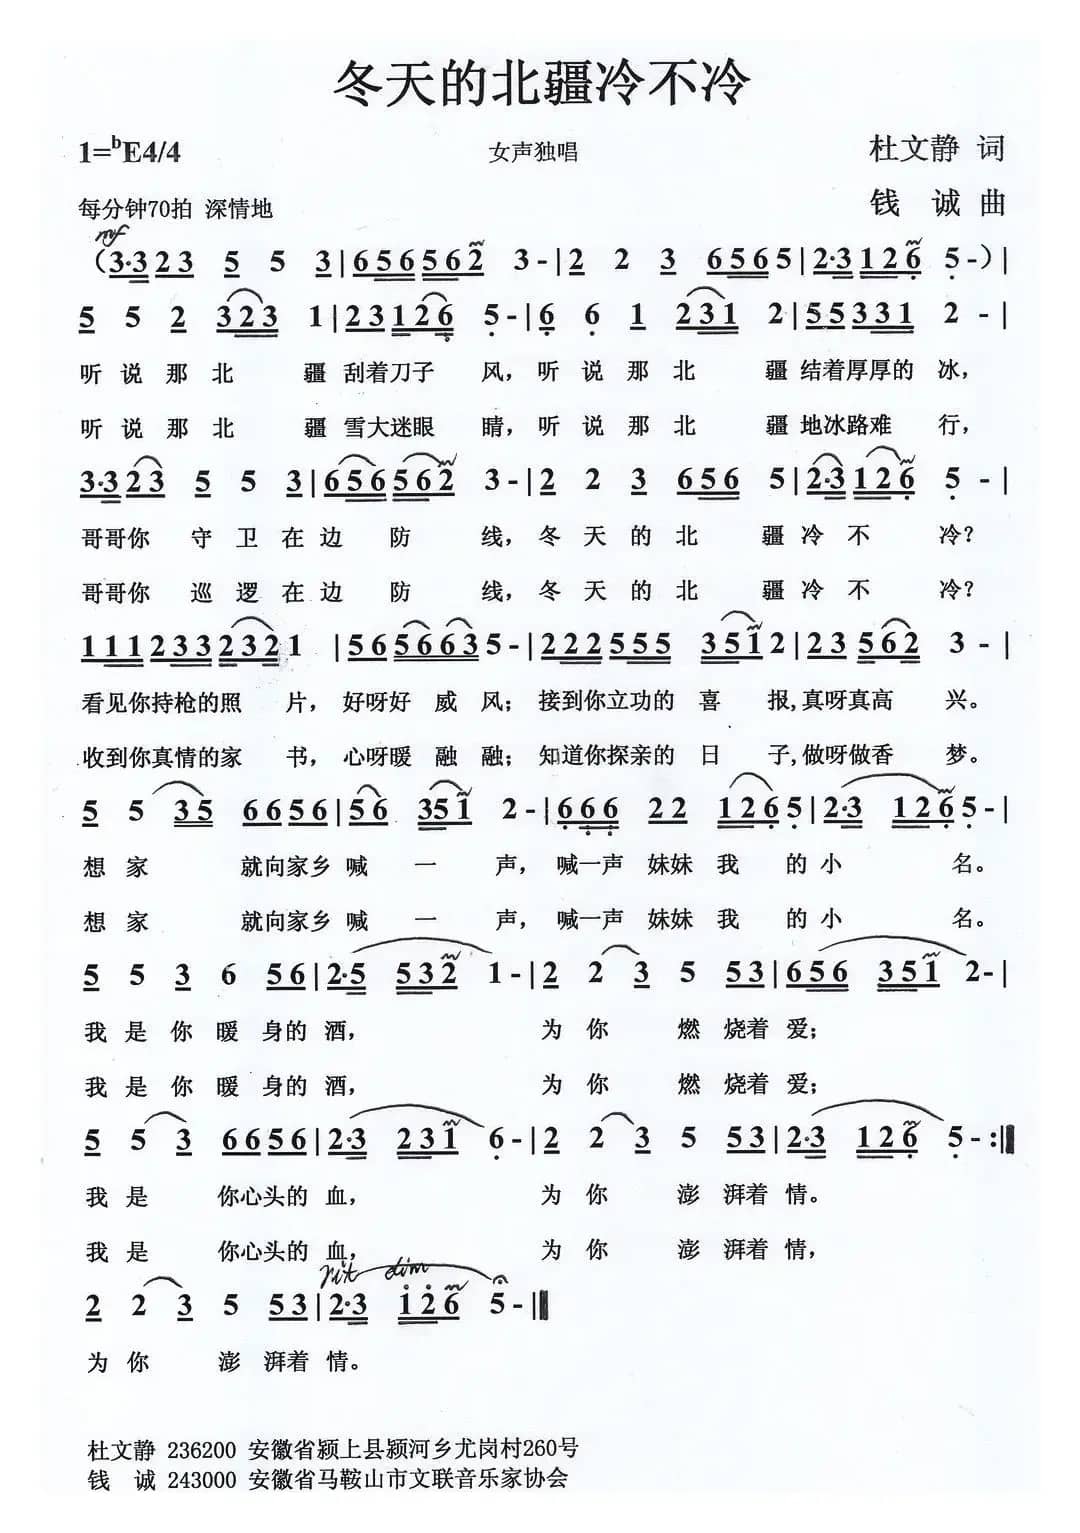 冬天的北疆冷不冷
1=ᵇE4/4 女声独唱 杜文静 词
每分钟70拍 深情地 钱 诚 曲
mf
(3·3 2 3 5 5 3|6 5 6 5 6 2 3 -|2 2 3 6 5 6 5|2·3 1 2 6 5 -)|
5 5 2 3 2 3 1|2 3 1 2 6 5 -|6 6 1 2 3 1 2|5 5 3 3 3 1 2 -|
听 说 那 北 疆 刮着刀子 风, 听 说 那 北 疆 结着厚厚的 冰,
听 说 那 北 疆 雪大迷眼 睛, 听 说 那 北 疆 地冰路难 行,
3·3 2 3 5 5 3|6 5 6 5 6 2 3 -|2 2 3 6 5 6 5|2·3 1 2 6 5 -|
哥哥你 守 卫 在 边 防 线, 冬 天 的 北 疆 冷 不 冷?
哥哥你 巡 逻 在 边 防 线, 冬 天 的 北 疆 冷 不 冷?
1 1 1 2 3 3 2 3 2 1 |5 6 5 6 6 3 5 -|2 2 2 5 5 5 3 5 1 2|2 3 5 6 2 3 -|
看见你持枪的照 片, 好呀好 威 风; 接到你立功的 喜 报,真呀真高 兴。
收到你真情的家 书, 心呀暖 融 融; 知道你探亲的 日 子,做呀做香 梦。
5 5 3 5 6 6 5 6|5 6 3 5 1 2 -|6 6 6 2 2 1 2 6 5|2·3 1 2 6 5 -|
想 家 就向家乡 喊 一 声, 喊一声 妹妹 我 的 小 名。
想 家 就向家乡 喊 一 声, 喊一声 妹妹 我 的 小 名。
5 5 3 6 5 6|2·5 5 3 2 1 -|2 2 3 5 5 3|6 5 6 3 5 1 2-|
我 是 你 暖 身的 酒, 为 你 燃 烧着 爱;
我 是 你 暖 身的 酒, 为 你 燃 烧着 爱;
5 5 3 6 6 5 6|2·3 2 3 1 6 -|2 2 3 5 5 3|2·3 1 2 6 5 -:‖
我 是 你心头的 血, 为 你 澎 湃着 情。
我 是 你心头的 血, 为 你 澎 湃着 情,
rit dim
2 2 3 5 5 3|2·3 1 2 6 5 -‖
为 你 澎 湃着 情。
杜文静 236200 安徽省颍上县颍河乡尤岗村260号
钱 诚 243000 安徽省马鞍山市文联音乐家协会